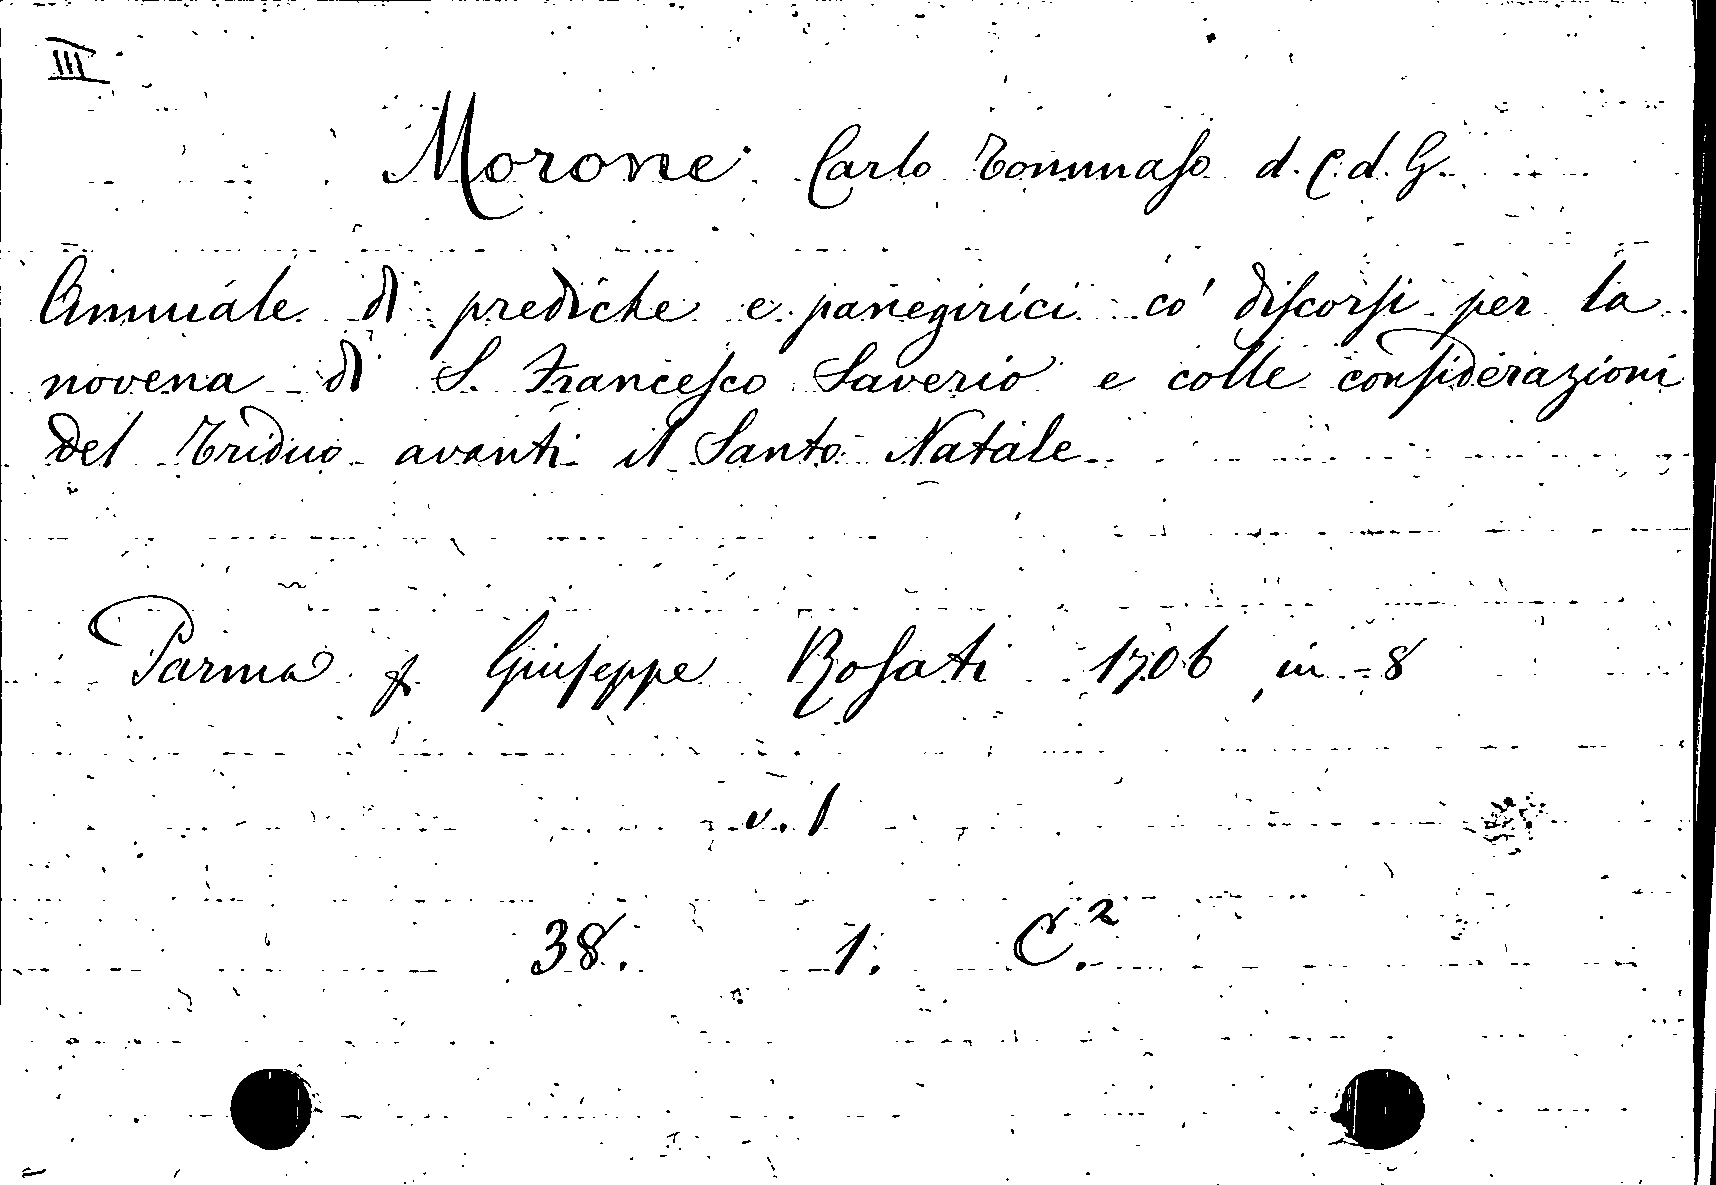 III
Morone Carlo Tommaso d. C. d. G.
Annuale di prediche e panegirici co' discorsi per la
novena di S. Francesco Saverio e colle considerazioni
del Triduo avanti il Santo Natale
Parma p. Giuseppe Rosati 1706 in-8
v. 1
38. 1. C.²